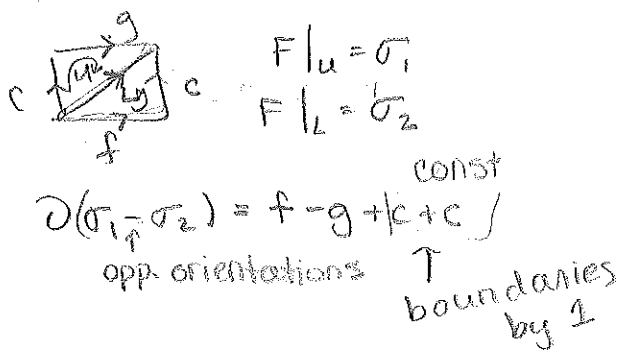 g
F|_u = σ_1
c
u
L
c
F|_L = σ_2
f
const
∂(σ_1 - σ_2) = f - g + c + c
opp. orientations
boundaries
by 1